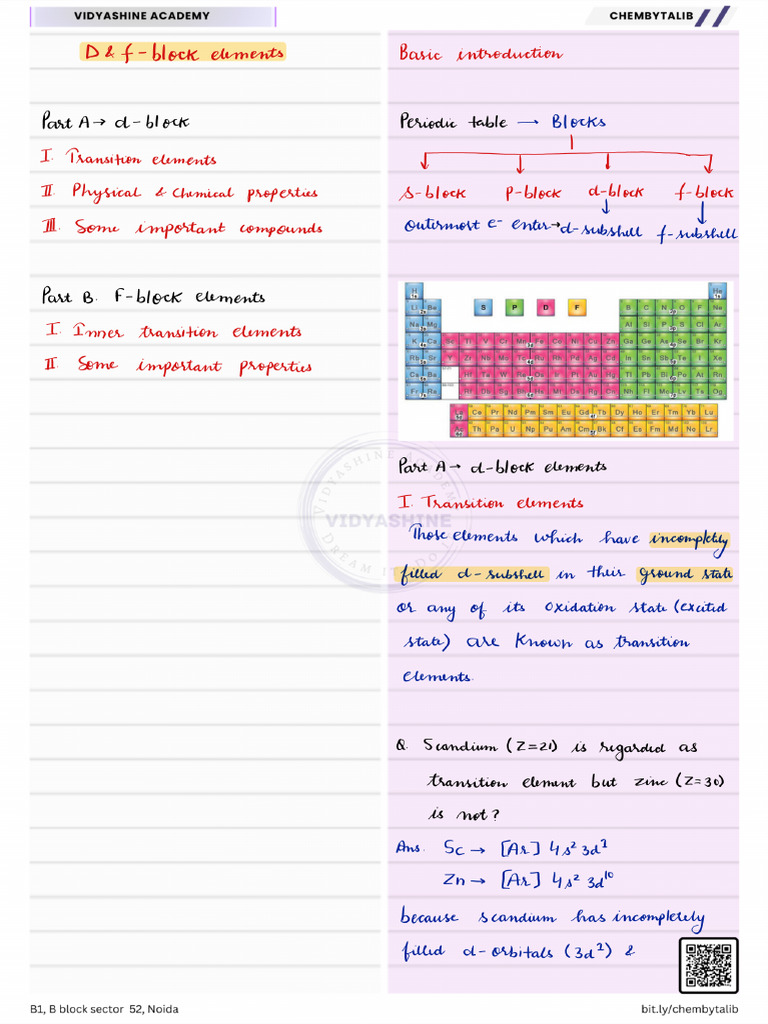 VIDYASHINE ACADEMY
CHEMBYTALIB
D & f-block elements
Part A → d-block
I. Transition elements
II. Physical & chemical properties
III. Some important compounds
Part B. F-block elements
I. Inner transition elements
II. Some important properties
Basic introduction
Periodic table → Blocks
s-block p-block d-block f-block
Outermost e- enter → d-subshell f-subshell
H He
S P D F
Li Be B C N O F Ne
Na Mg Al Si P S Cl Ar
K Ca Sc Ti V Cr Mn Fe Co Ni Cu Zn Ga Ge As Se Br Kr
Rb Sr Y Zr Nb Mo Tc Ru Rh Pd Ag Cd In Sn Sb Te I Xe
Cs Ba Hf Ta W Re Os Ir Pt Au Hg Tl Pb Bi Po At Rn
Fr Ra Rf Db Sg Bh Hs Mt Ds Rg Cn Nh Fl Mc Lv Ts Og
La Ce Pr Nd Pm Sm Eu Gd Tb Dy Ho Er Tm Yb Lu
Ac Th Pa U Np Pu Am Cm Bk Cf Es Fm Md No Lr
Part A → d-block elements
I. Transition elements
Those elements which have incompletly
filled d-subshell in their ground state
or any of its oxidation state (excited
state) are known as transition
elements.
VIDYASHINE ACADEMY
VIDYASHINE
DREAM IT DO IT
Q. Scandium (Z=21) is regarded as
transition element but zinc (Z=30)
is not?
Ans. Sc → [Ar] 4s² 3d¹
Zn → [Ar] 4s² 3d¹⁰
because scandium has incompletely
filled d-orbitals (3d¹) &
B1, B block sector 52, Noida
bit.ly/chembytalib